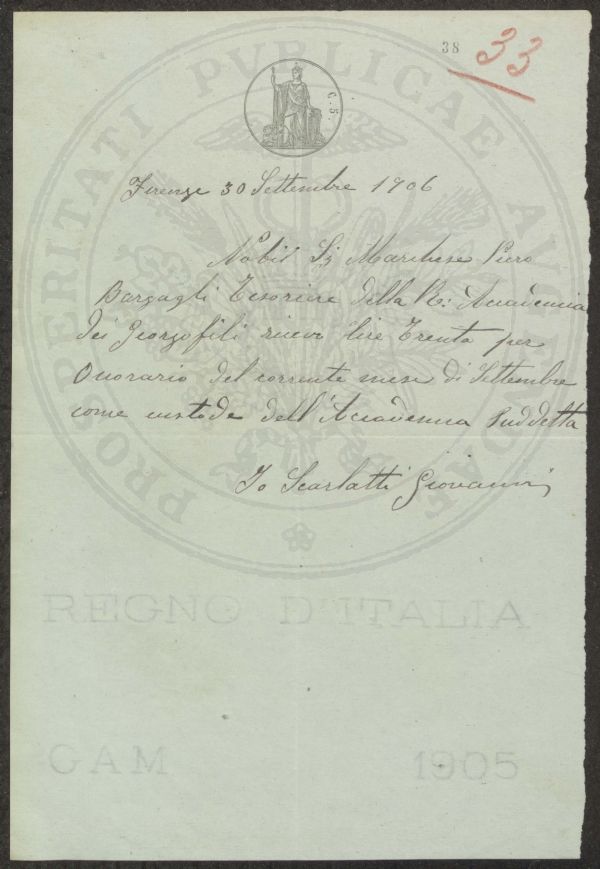 38
33
C. 5.
Firenze 30 Settembre 1906
Nobil Sig Marchese Piero
Bargagli Tesoriere della R: Accademia
dei Georgofili ricevo lire Trenta per
Onorario del corrente mese di Settembre
come custode dell'Accademia suddetta
Io Scarlatti Giovanni
PROSPERITATI PVBLICAE AVGENDAE
REGNO D'ITALIA
GAM 1905